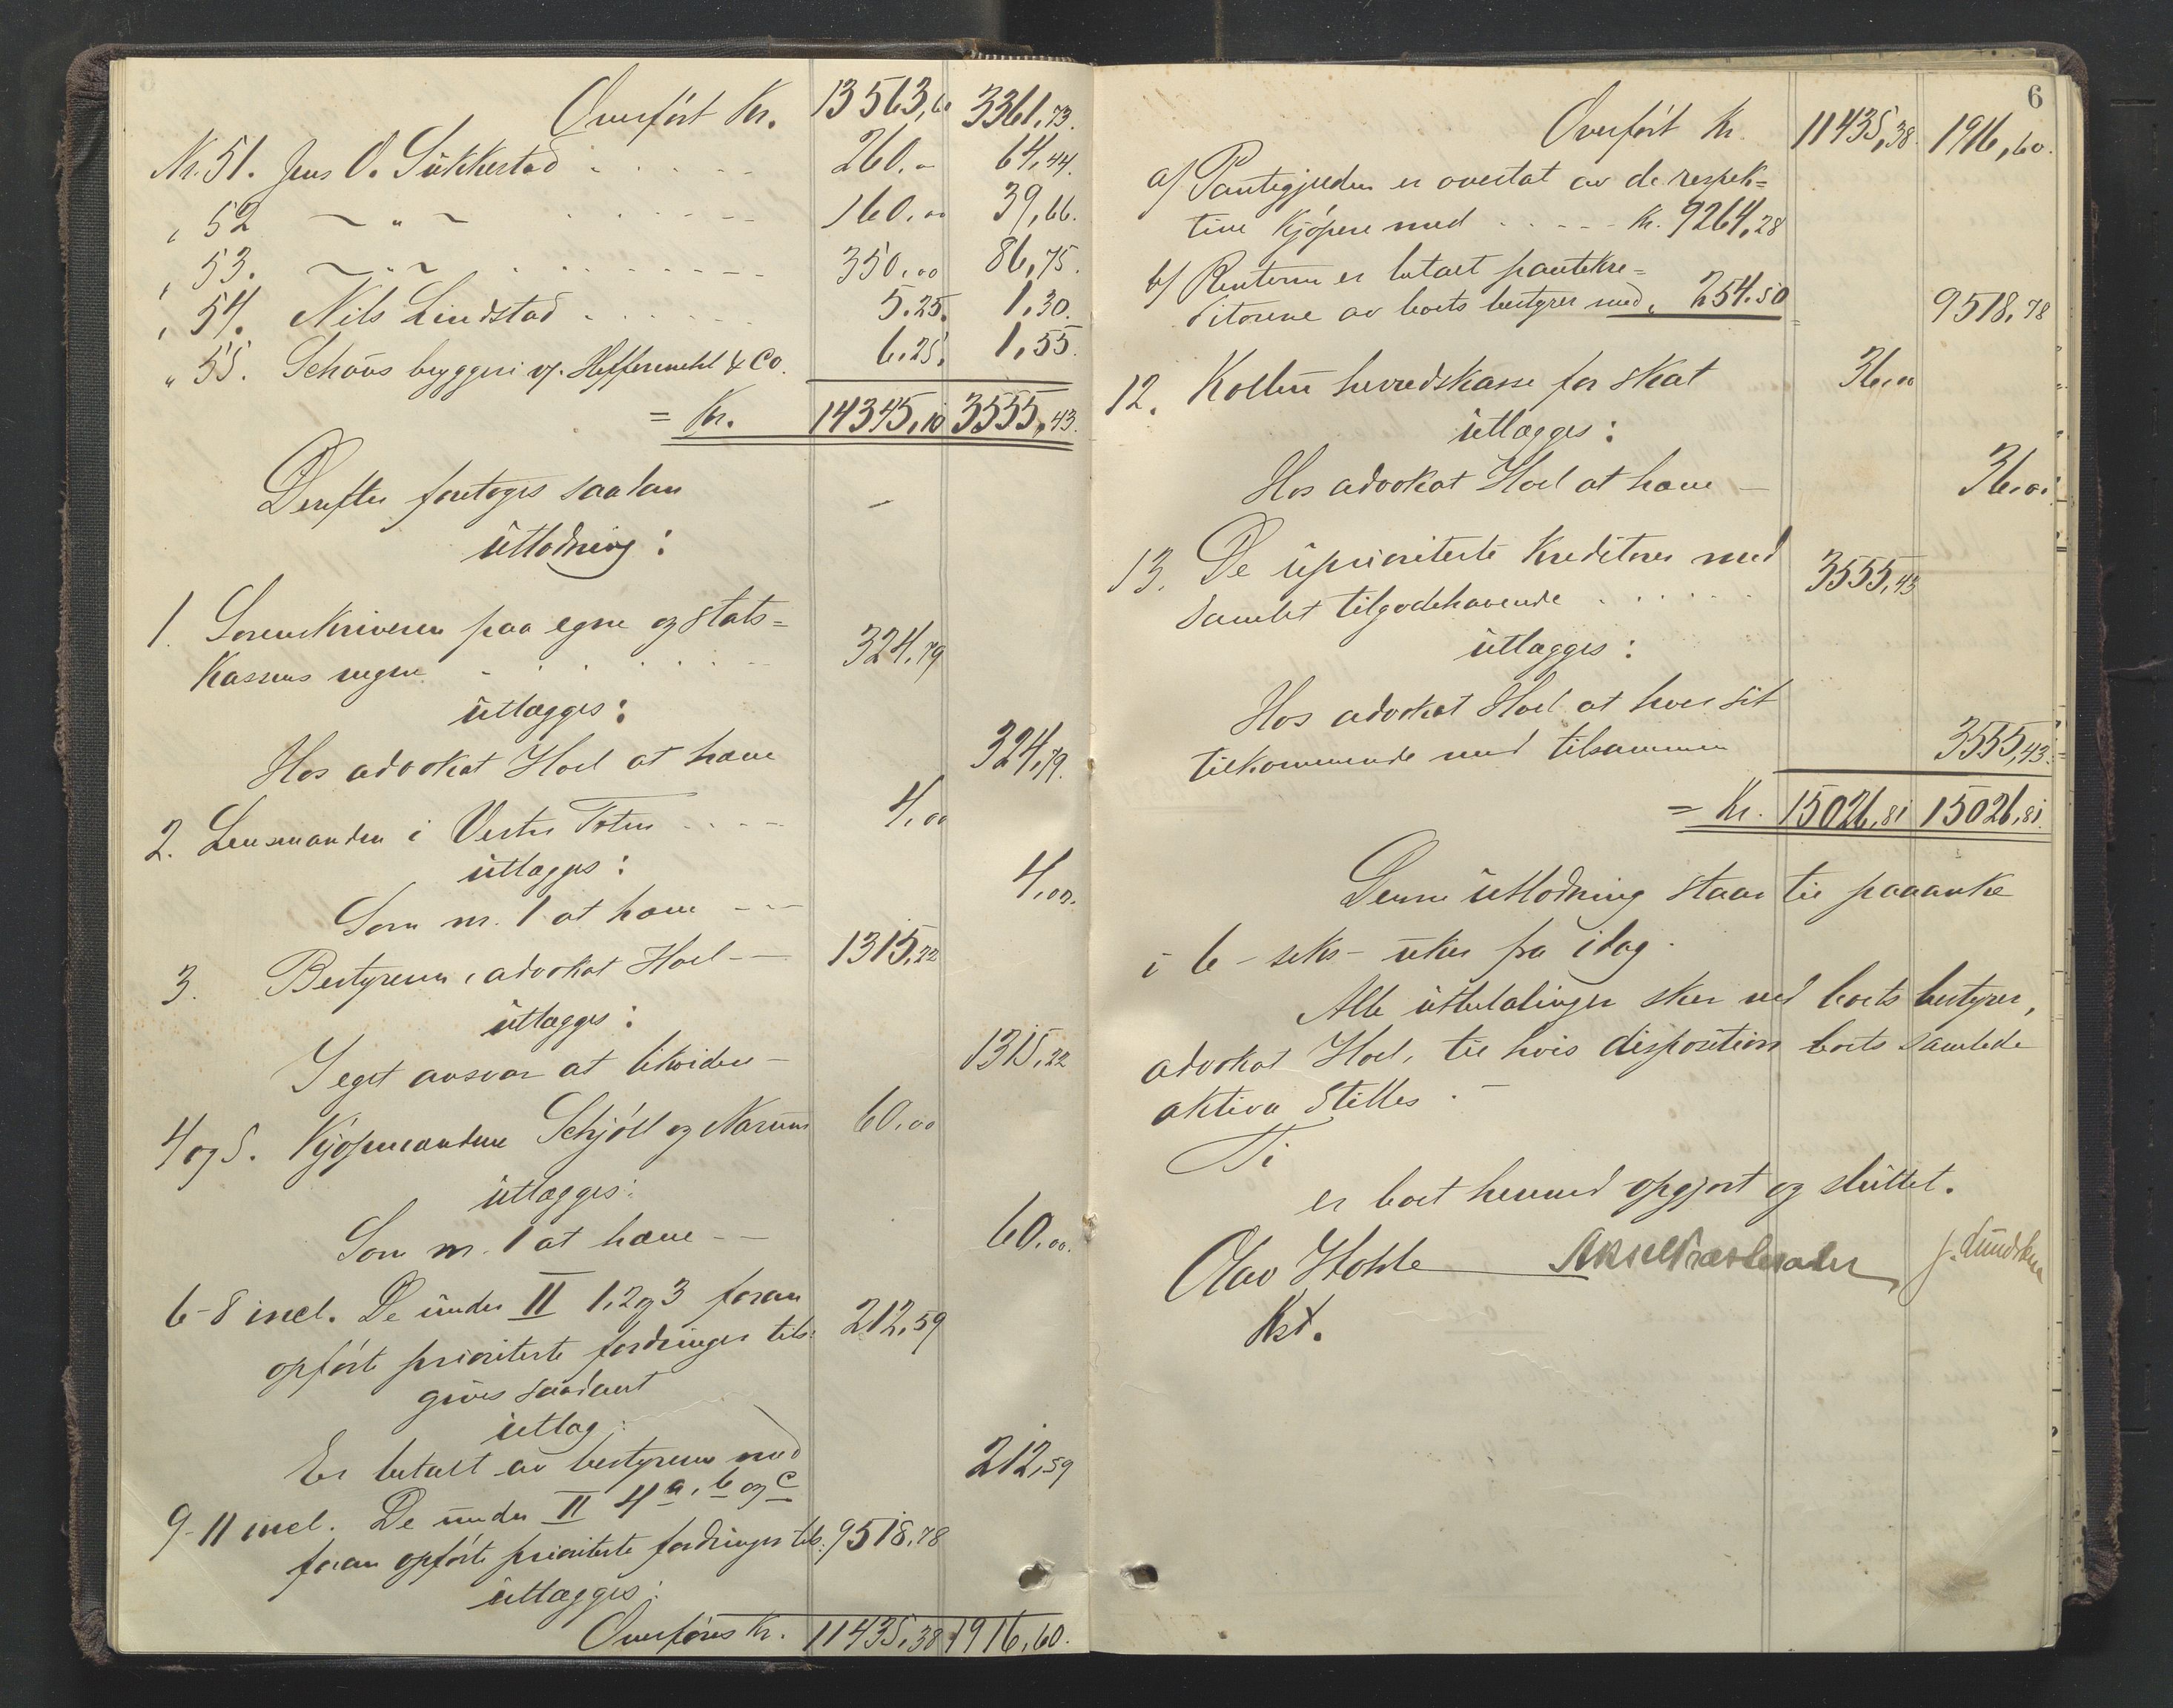 Overført Kr. 13563,60 3361,73.
Nr. 51. Jens O. Sükkestad 260.- 64,44.
" 52 — " — 160.00 39,66.
" 53. — " — 350.00 86,75.
" 54. Nils Lindstad 5.25. 1.30.
" 55. Schous bryggeri v/. Heffermehl & Co. 6,25. 1,55.
= Kr. 14345,10 3555,43.
Derefter foretoges saadan
utlodning:
1. Sorenskriveren paa egne og stats=
kassens vegne 324,79
utlægges:
Hos advokat Hoel at hæve 324,79.
2. Lensmanden i Vestre Toten 4,00
utlægges:
Som nr. 1 at hæve 4,00.
3. Bestyreren, advokat Hoel 1315,22
utlægges:
I eget ansvar at likvidere 1315,22
4 og 5. Kjøpmændene Schjöll og Narum 60,00
utlægges:
Som nr. 1 at hæve 60,00.
6-8 incl. De under II 1, 2 og 3 foran
opførte prioriterte fordringer tils. 212,59
gives saadant
utlæg:
Er betalt av bestyreren med 212,59
9-11 incl. De under II 4 a, b og c
foran opførte prioriterte fordringer tils. 9518,78
utlægges:
Overføres Kr. 11435,38 1916,60.
6
Overført Kr. 11435,38. 1916,60.
a/ Pantegjælden er overtat av de respek=
tive kjøpere med Kr. 9264,28
b/ Renterne er betalt pantekre=
ditorene av boets bestyrer med " 254.50 9518,78
12. Kolbu herredskasse for skat 36,00
utlægges:
Hos advokat Hoel at hæve 36.00
13. De uprioriterte kreditorer med
samlet tilgodehavende 3555,43
utlægges:
Hos advokat Hoel at hæve sit
tilkommende med tilsammen 3555,43.
= Kr. 15026,81 15026,81.
Denne utlodning staar til paaanke
i 6 - seks - uker fra idag.
Alle utbetalinger sker ved boets bestyrer,
advokat Hoel, til hvis disposition boets samlede
aktiva stilles.
Ti
er boet hermed opgjort og sluttet.
Olav Hohle
Kst.